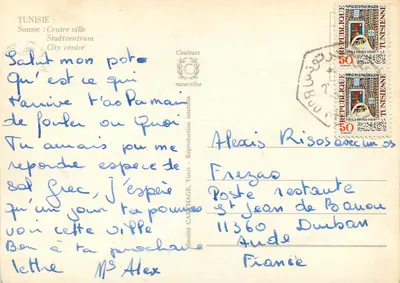 TUNISIE :
Sousse : Centre ville
Stadtzentrum
City center
Salut mon pote
Qu'est ce qui
t'arrive t'as Pa main
de fouler ou Quoi
Tu aurais pu me
repondre espece de
sal Grec, j'espère
qu'un jour tu pourras
voir cette ville
Ben à ta prochaine
lettre Alex
Couleurs
naturelles
Edition CARTHAGE, Tunis - Reproduction interdite
REPUBLIQUE
TUNISIENNE
50
REPUBLIQUE
TUNISIENNE
50
Alexis Risos avec un os
Frezas
Poste restante
St Jean de Barrou
11360 Durban
Aude
France